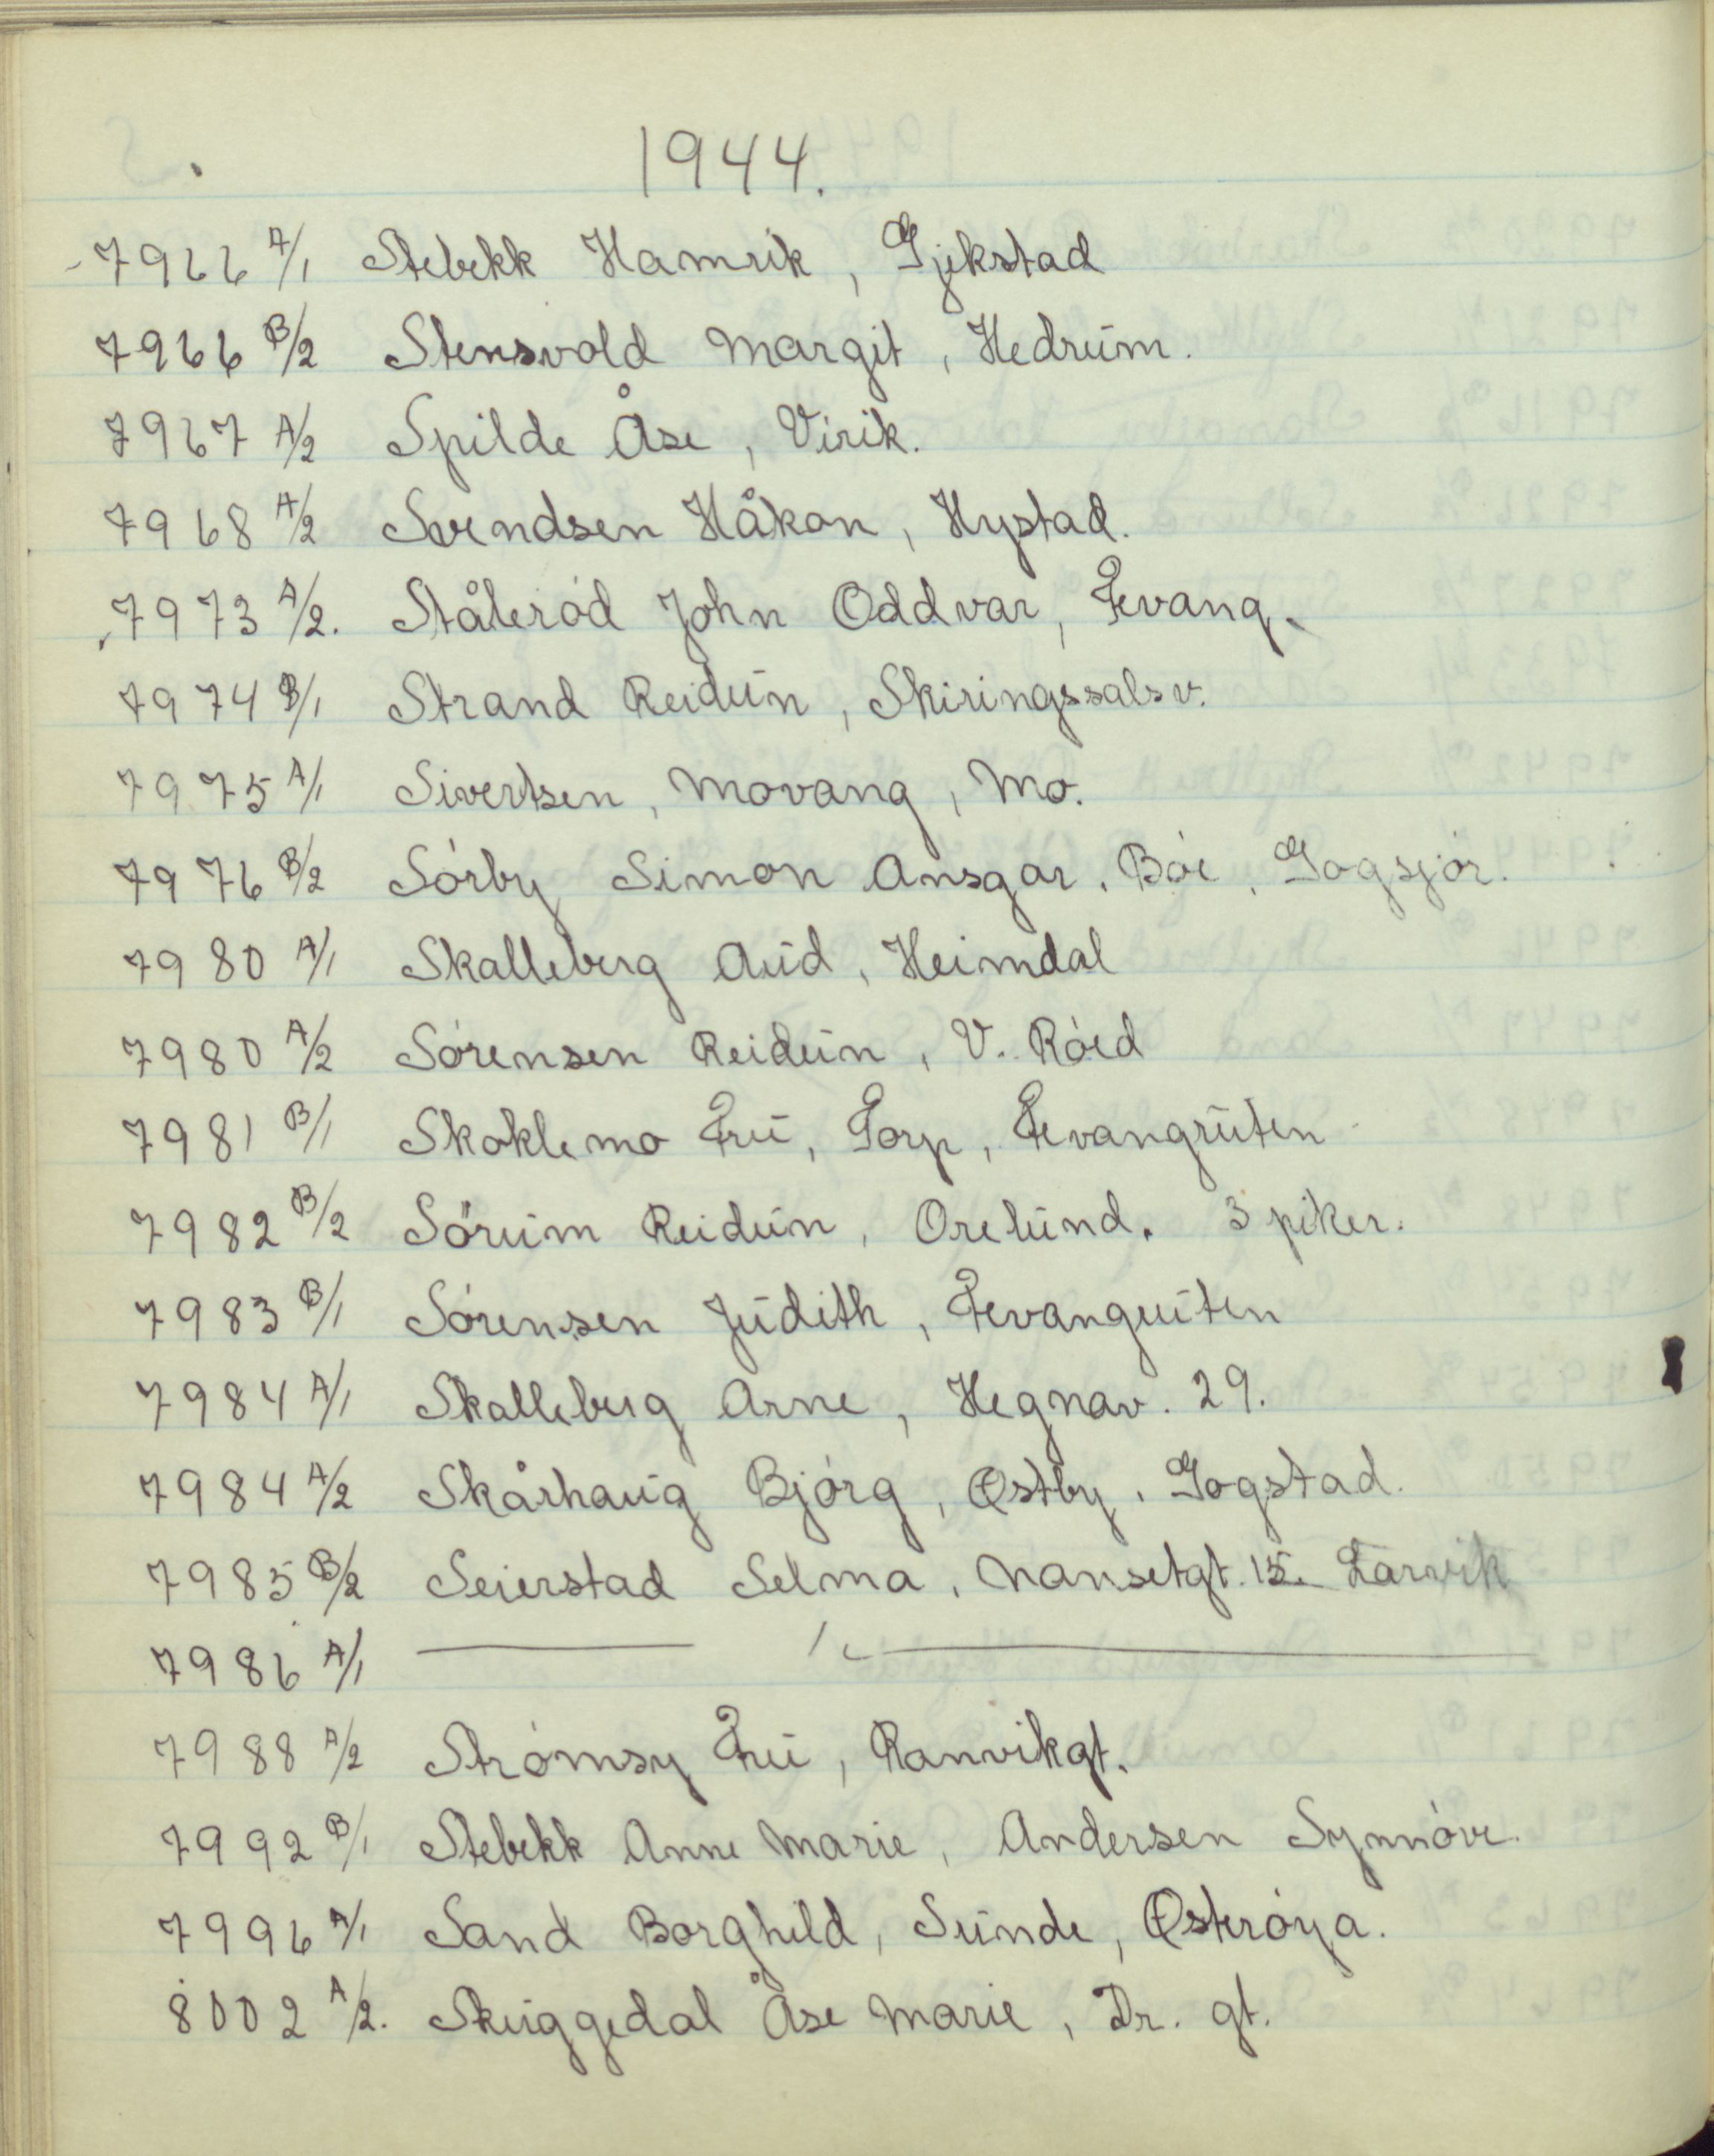 1944.
7966 A/1 Stebekk Hamrik, Gjekstad
7966 B/2 Stensvold Margit, Hedrum.
7967 A/2 Spilde Åse, Virik.
7968 A/2 Svendsen Håkon, Hystad.
7973 A/2. Stålerød John Oddvar, Fevang.
7974 B/1 Strand Reidun, Skiringssalsv.
7975 A/1 Sivertsen, Movang, Mo.
7976 B/2 Sørby Simon Ansgar. Bøe, Gogsjør.
7980 A/1 Skalleberg Aud, Heimdal
7980 A/2 Sørensen Reidun, V. Røed
7981 B/1 Skoklemo Fru, Torp, Fevangruten
7982 B/2 Sørum Reidun, Orelund. 3 piker.
7983 B/1 Sørensen Judith, Fevangruten
7984 A/1 Skalleberg Arne, Hegnav. 29.
7984 A/2 Skårhaug Bjørg, Østby, Gogstad.
7985 B/2 Seierstad Selma, Nansetgt. 15. Larvik
7986 A/1
7988 A/2 Strømsy Fru, Ranvikgt.
7992 B/1 Stebekk Anne Marie, Andersen Synnøve.
7996 A/1 Sand Borghild, Sunde, Østerøya.
8002 A/2. Skuggedal Åse Marie, Dr. gt.